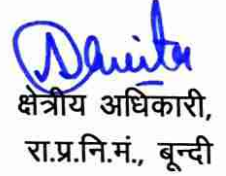 क्षेत्रीय अधिकारी,
रा.प्र.नि.मं., बून्दी